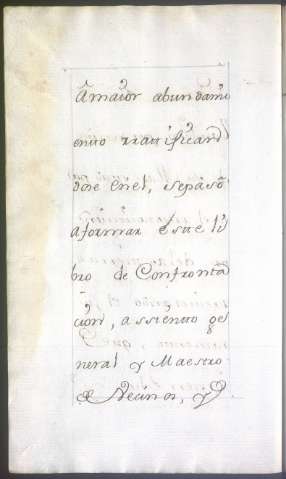 Amaior abundami
ento rattificand
dose enel, sepasó
aformar este li
bro de Confronta
ción, assiento ge
neral y Maestro
de Vecinos, y